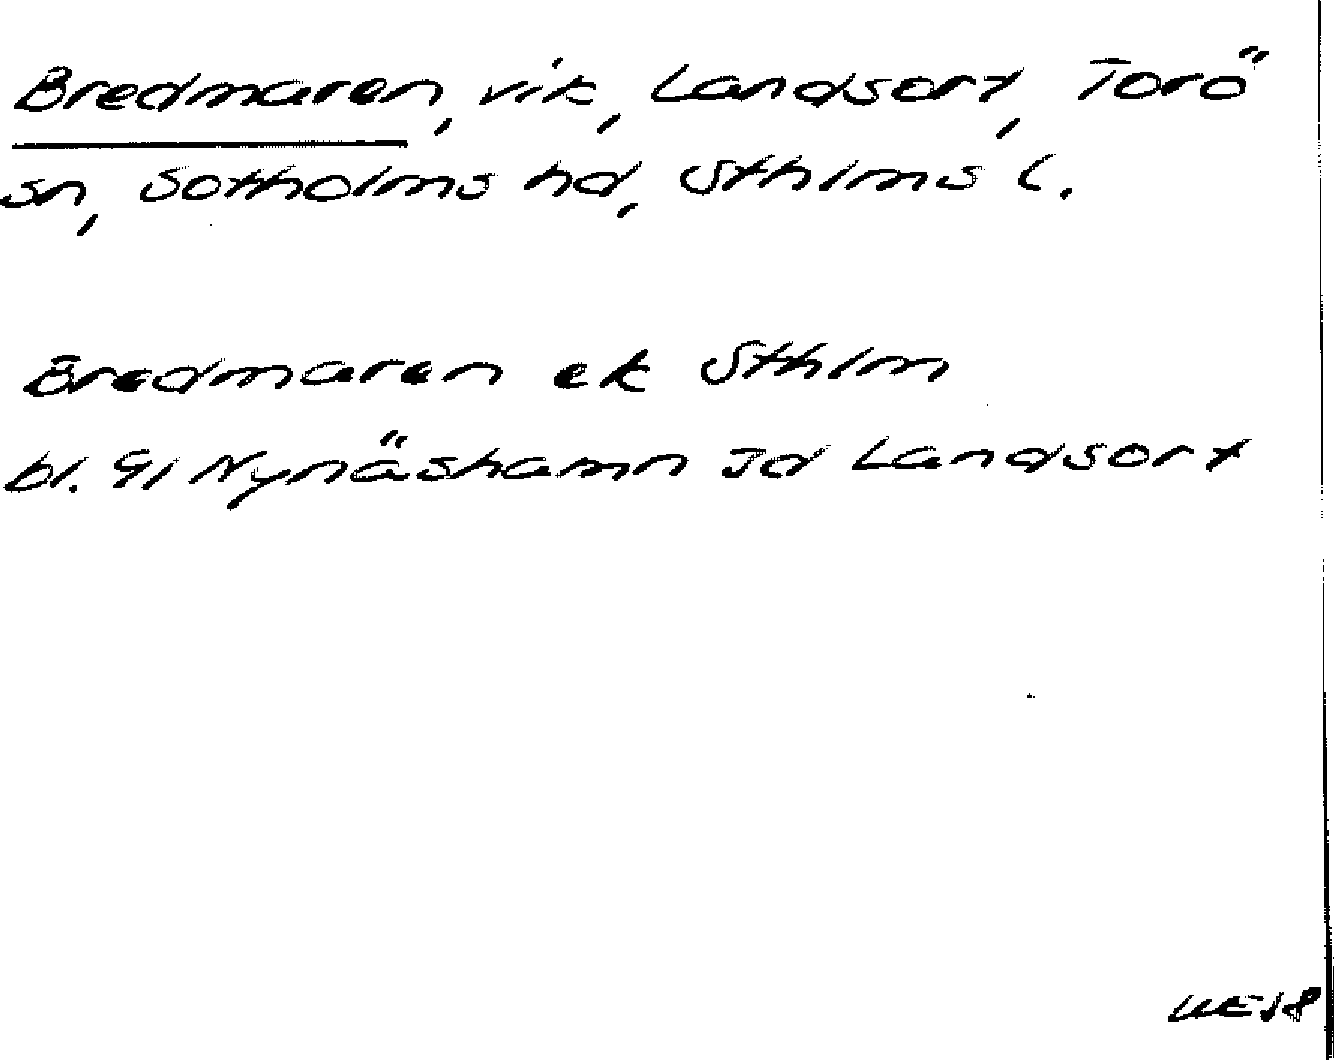 Bredmaren, vik, Landsort, Torö
sn, Sotholms hd, Sthlms l.
Bredmaren ek Sthlm
bl. 91 Nynäshamn Jd Landsort